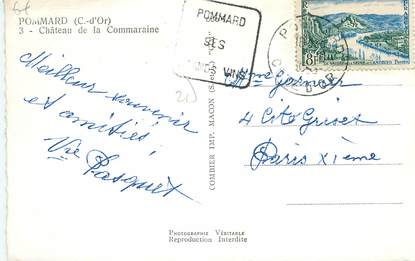 POMMARD (C.-d'Or)
3 - Château de la Commaraine
POMMARD
SES
VINS
8F
Meilleur souvenir
et amitiés
Vve Pasquet
Mme Garnier
4 Cité Griset
Paris XIème
COMBIER IMP. MACON
PHOTOGRAPHIE VÉRITABLE
Reproduction Interdite